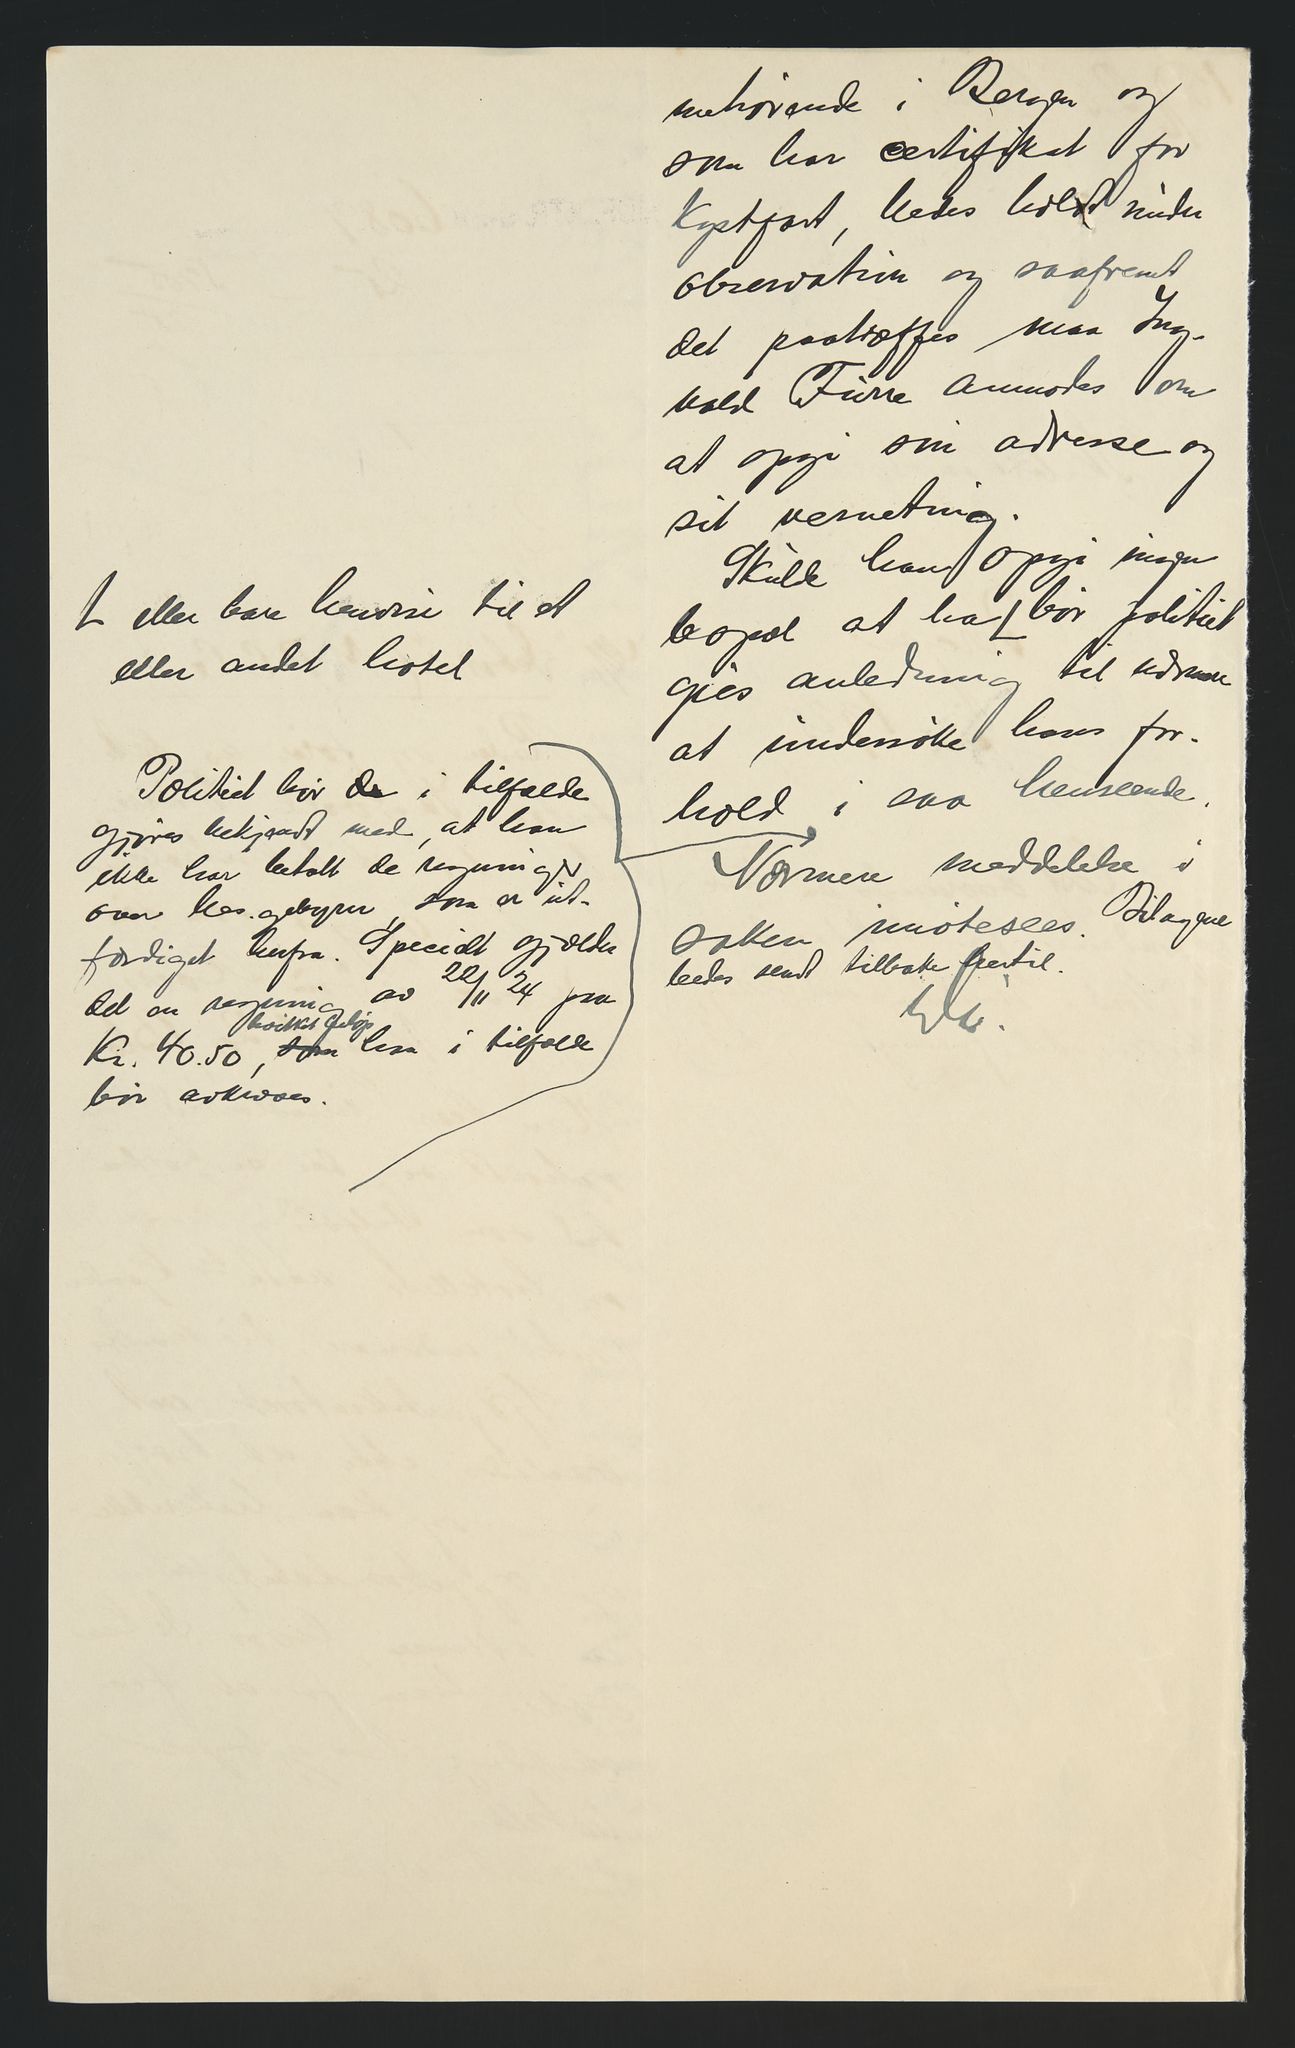 mehörende i Bergen og
som har certifikat for
Kystfart, bedes holdt under
observation og saafremt
det paatræffes maa Ing-
vald Furre anmodes om
at opgi sin adresse og
sit verneting.
Skulde han opgi ingen
bopæl at ha bør politiet
gies anledning til nærmere
at undersøke hans for-
hold i saa henseende.
Nærmere meddelelse i
saken imøtesees. Bilagene
bedes sendt tilbake hertil.
eller bare henvise til et
eller andet hotel
Politiet bør i tilfælde
gjøres bekjendt med, at han
ikke har betalt de regninger
over bes.gebyrer, som er ut-
færdiget herfra. Specielt gjælder
det en regning av 22/11 24 paa
hvilket beløp
Kr. 40.50, som han i tilfælde
bør avkræves.